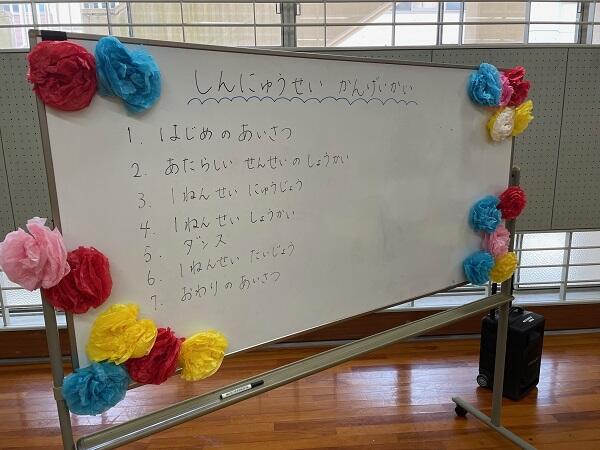 しんにゅうせい かんげいかい
1. はじめのあいさつ
2. あたらしい せんせいの しょうかい
3. 1ねんせい にゅうじょう
4. 1ねんせい しょうかい
5. ダンス
6. 1ねんせい たいじょう
7. おわりのあいさつ